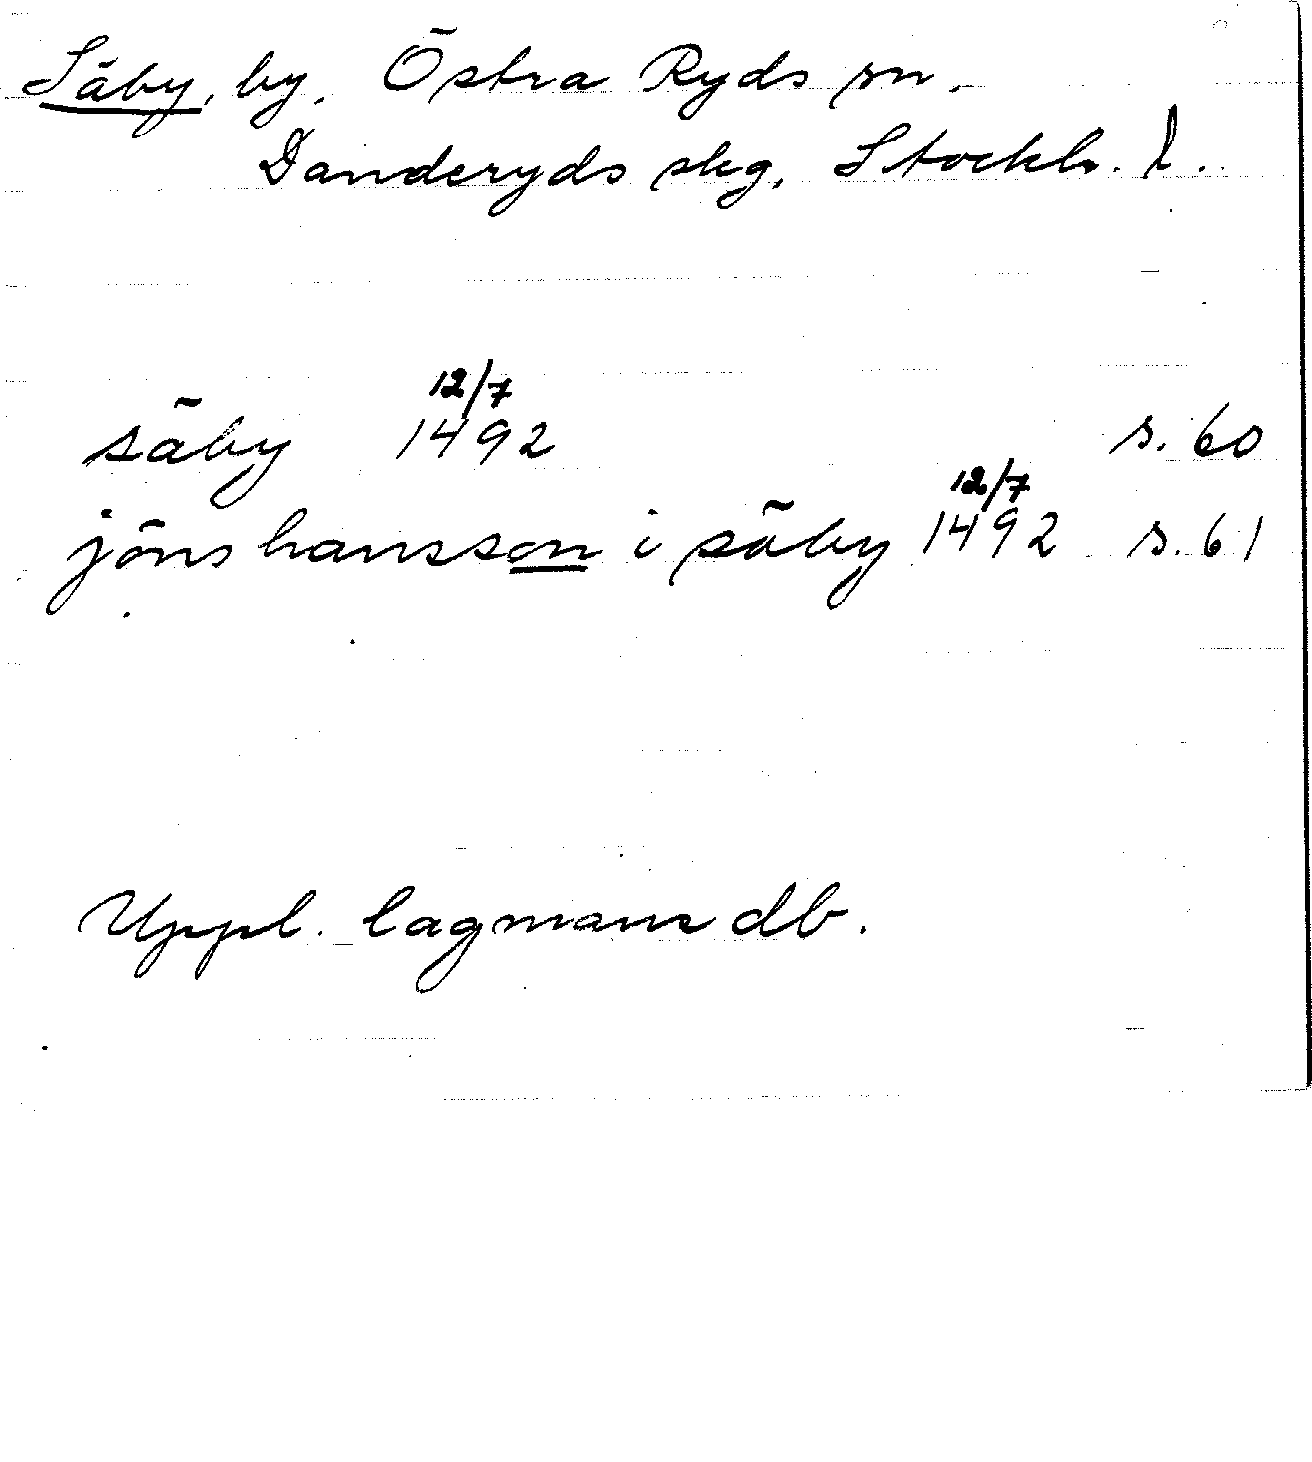 Säby, by. Östra Ryds sn.
Danderyds skg, Stockh. l.
säby 12/7 1492 s. 60
jöns hansson i säby 12/7 1492 s. 61
Uppl. lagmans db.